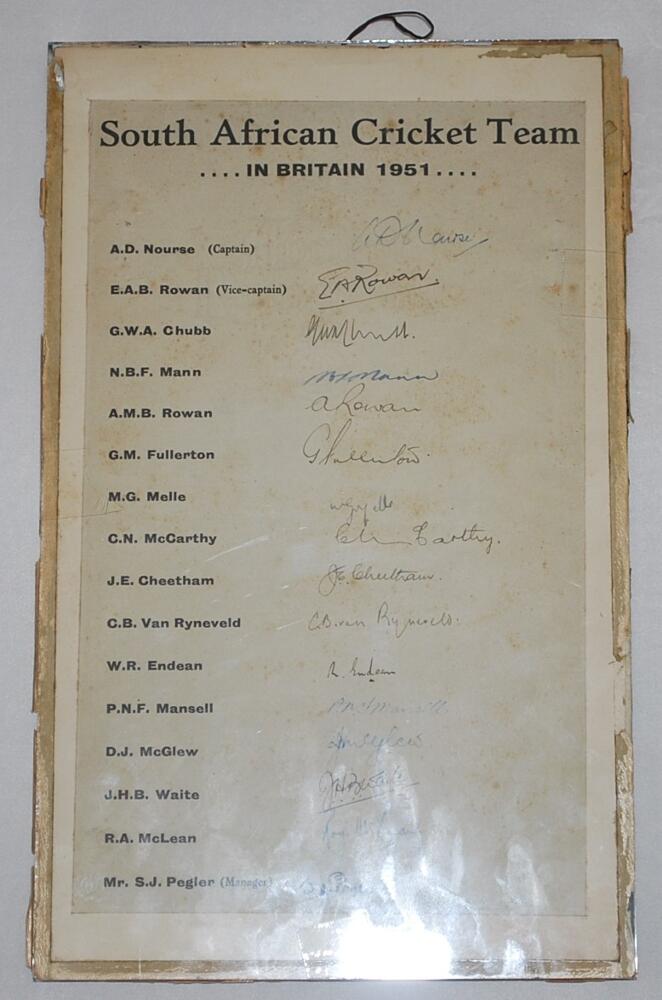 South African Cricket Team
....IN BRITAIN 1951....
A.D. Nourse (Captain) A D Nourse
E.A.B. Rowan (Vice-captain) E A Rowan.
G.W.A. Chubb
N.B.F. Mann NBF Mann
A.M.B. Rowan A Rowan
G.M. Fullerton G Fullerton.
M.G. Melle
C.N. McCarthy
J.E. Cheetham J.E. Cheetham.
C.B. Van Ryneveld C.B. van Ryneveld.
W.R. Endean R. Endean
P.N.F. Mansell P.N.F Mansell
D.J. McGlew
J.H.B. Waite J.H.B. Waite
R.A. McLean
Mr. S.J. Pegler (Manager)